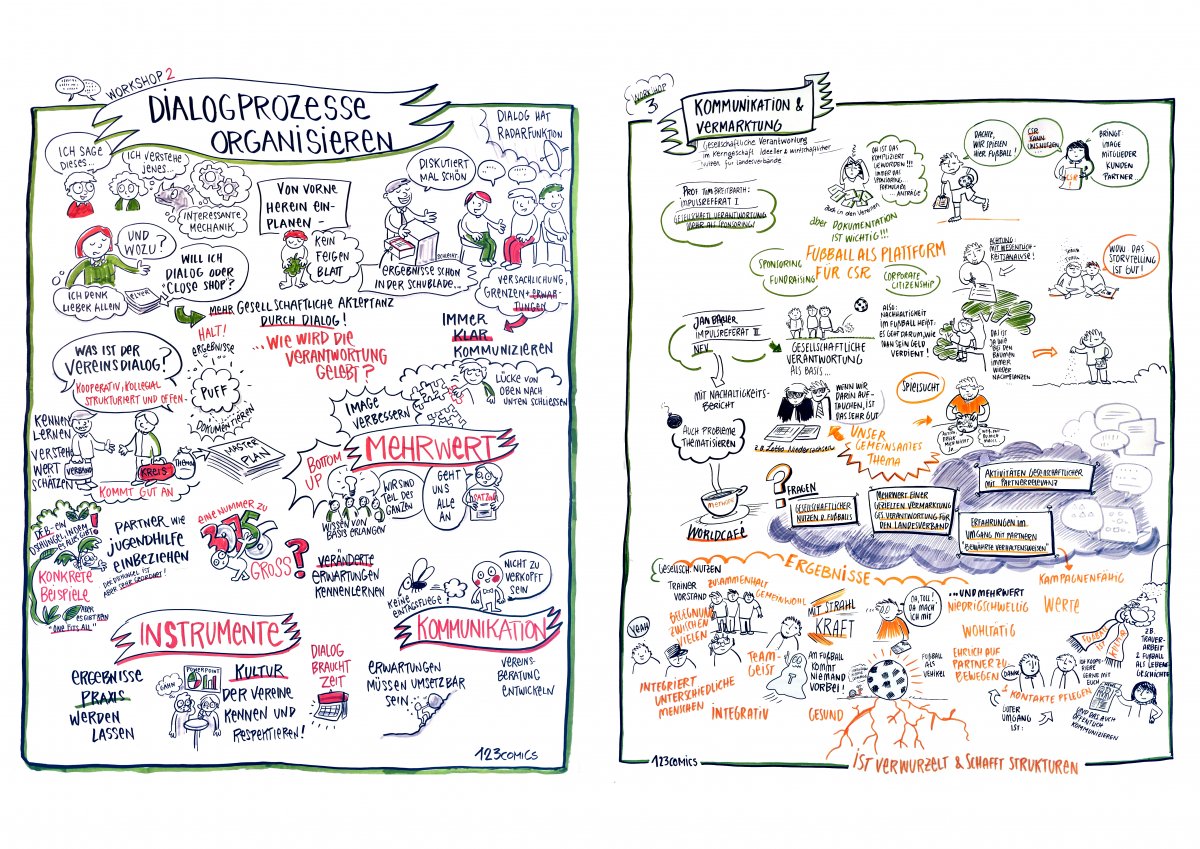 WORKSHOP 2
DIALOGPROZESSE
ORGANISIEREN
DIALOG HAT
RADARFUNKTION
ICH SAGE
DIESES...
ICH VERSTEHE
JENES...
INTERESSANTE
MECHANIK
VON VORNE
HEREIN EIN-
PLANEN -
KEIN
FEIGEN
BLATT
DISKUTIERT
MAL SCHÖN
ERGEBNISSE SCHON
IN DER SCHUBLADE...
UND
WOZU?
ICH DENK
LIEBER ALLEIN
FLYER
WILL ICH
DIALOG ODER
CLOSE SHOP?
VERSACHLICHUNG,
GRENZEN + ERWAR
TUNGEN
MEHR GESELLSCHAFTLICHE AKZEPTANZ
DURCH DIALOG!
...WIE WIRD DIE
VERANTWORTUNG
GELEBT?
IMMER
KLAR
KOMMUNIZIEREN
HALT!
ERGEBNISSE
PUFF
DOKUMENTIEREN
WAS IST DER
VEREINSDIALOG?
KOOPERATIV, KOLLEGIAL
STRUKTURIERT UND OFFEN -
KENNEN
LERNEN
VERSTEHEN
WERT
SCHÄTZEN
VERBAND
KREIS?
THEMA
MASTER
PLAN
KOMMT GUT AN
IMAGE
VERBESSERN
LÜCKE VON
OBEN NACH
UNTEN SCHLIESSEN
MEHRWERT
BOTTOM
UP
WISSEN VON
BASIS ERLANGEN
WIR SIND
TEIL DES
GANZEN
GEHT
UNS
ALLE
AN
SATZUNG
DFB - EIN
DSCHUNGEL, IN DEM
ES ALLES GIBT
KONKRETE
BEISPIELE
ABER
ES GIBT KEIN
"ONE FITS ALL"
PARTNER WIE
JUGENDHILFE
EINBEZIEHEN
DER DSCHUNGEL IST
ABER SEHR GEORDNET!
EINE NUMMER ZU
GROSS?
VERÄNDERTE
ERWARTUNGEN
KENNENLERNEN
KEINE
EINTAGSFLIEGE!
NICHT ZU
VERKOPFT
SEIN
INSTRUMENTE
KOMMUNIKATION
ERGEBNISSE
PRAXIS
WERDEN
LASSEN
GÄHN
POWERPOINT
KULTUR
DER VEREINE
KENNEN UND
RESPEKTIEREN!
DIALOG
BRAUCHT
ZEIT
ERWARTUNGEN
MÜSSEN UMSETZBAR
SEIN
VEREINS-
BERATUNG
ENTWICKELN
123COMICS
WORKSHOP
3
KOMMUNIKATION &
VERMARKTUNG
Gesellschaftliche Verantwortung
im Kerngeschäft. Ideeller & wirtschaftlicher
Nutzen für Landesverbände.
PROF. TIM BREITBARTH:
IMPULSREFERAT I
GESELLSCHAFTL. VERANTWORTUNG
MEHR ALS SPONSORING!
OH IST DAS
KOMPLIZIERT
GEWORDEN...
IMMER DAS
SPONSORING...
FORMULARE
... ANTRÄGE
auch in den Vereinen
aber DOKUMENTATION
IST WICHTIG!!!
DACHTE,
WIR SPIELEN
HIER FUSSBALL!
CSR
KANN
UNS NUTZEN
CSR
BRINGT:
IMAGE
MITGLIEDER
KUNDEN
PARTNER...
SPONSORING
FUNDRAISING
FUSSBALL ALS PLATTFORM
FÜR CSR
CORPORATE
CITIZENSHIP
ACHTUNG:
MIT WESENTLICH-
KEITSANALYSE!
WOW DAS
STORYTELLING
IST GUT!
IMPULSREFERAT II
NFV
GESELLSCHAFTLICHE
VERANTWORTUNG
ALS BASIS...
ALSO:
NACHHALTIGKEIT
IM FUSSBALL HEISST:
ES GEHT DARUM, WIE
MAN SEIN GELD
VERDIENT!
DAS IST
JA WIE
BEI DEN
BÄUMEN
IMMER
WIEDER
NACHPFLANZEN
MIT NACHALTIGKEITS-
BERICHT
AUCH PROBLEME
THEMATISIEREN
WENN WIR
DARIN AUF-
TAUCHEN, IST
DAS SEHR GUT
z.B. Lotto Niedersachsen
UNSER
GEMEINSAMES
THEMA
SPIELSUCHT
MEHRWERT
WORLDCAFÉ
? FRAGEN
GESELLSCHAFTLICHER
NUTZEN D. FUSSBALLS
MEHRWERT EINER
GEZIELTEN VERMARKTUNG
GES. VERANTWORTUNG FÜR
DEN LANDESVERBAND
AKTIVITÄTEN GESELLSCHAFTLICHER
MIT PARTNERRELEVANZ
ERFAHRUNGEN IM
UMGANG MIT PARTNERN
"BEWÄHRTE VERHALTENSWEISEN"
ERGEBNISSE
GESELLSCH. NUTZEN
TRAINER
VORSTAND
ZUSAMMENHALT
GEMEINWOHL
BEGEGNUNG
ZWISCHEN
VIELEN
YEAH
INTEGRIERT
UNTERSCHIEDLICHE
MENSCHEN
TEAM-
GEIST
INTEGRATIV
MIT STRAHL
KRAFT
AM FUSSBALL
KOMMT
NIEMAND
VORBEI!
GESUND
DA, TOLL!
DA MACH
ICH MIT
FUSSBALL
ALS
VEHIKEL
...UND MEHRWERT
NIEDRIGSCHWELLIG
WOHLTÄTIG
EHRLICH AUF
PARTNER ZU
BEWEGEN
KAMPAGNENFÄHIG
WERTE
DANKE
KONTAKTE PFLEGEN
ICH KOOPE-
RIERE
GERNE MIT
EUCH
GUTER
UMGANG
IST:
UND DAS AUCH
ÖFFENTLICH
KOMMUNIZIEREN
Z.B.
TRAUER-
ARBEIT
FUSSBALL
ALS LEBENS-
GESCHICHTE
123COMICS
IST VERWURZELT & SCHAFFT STRUKTUREN